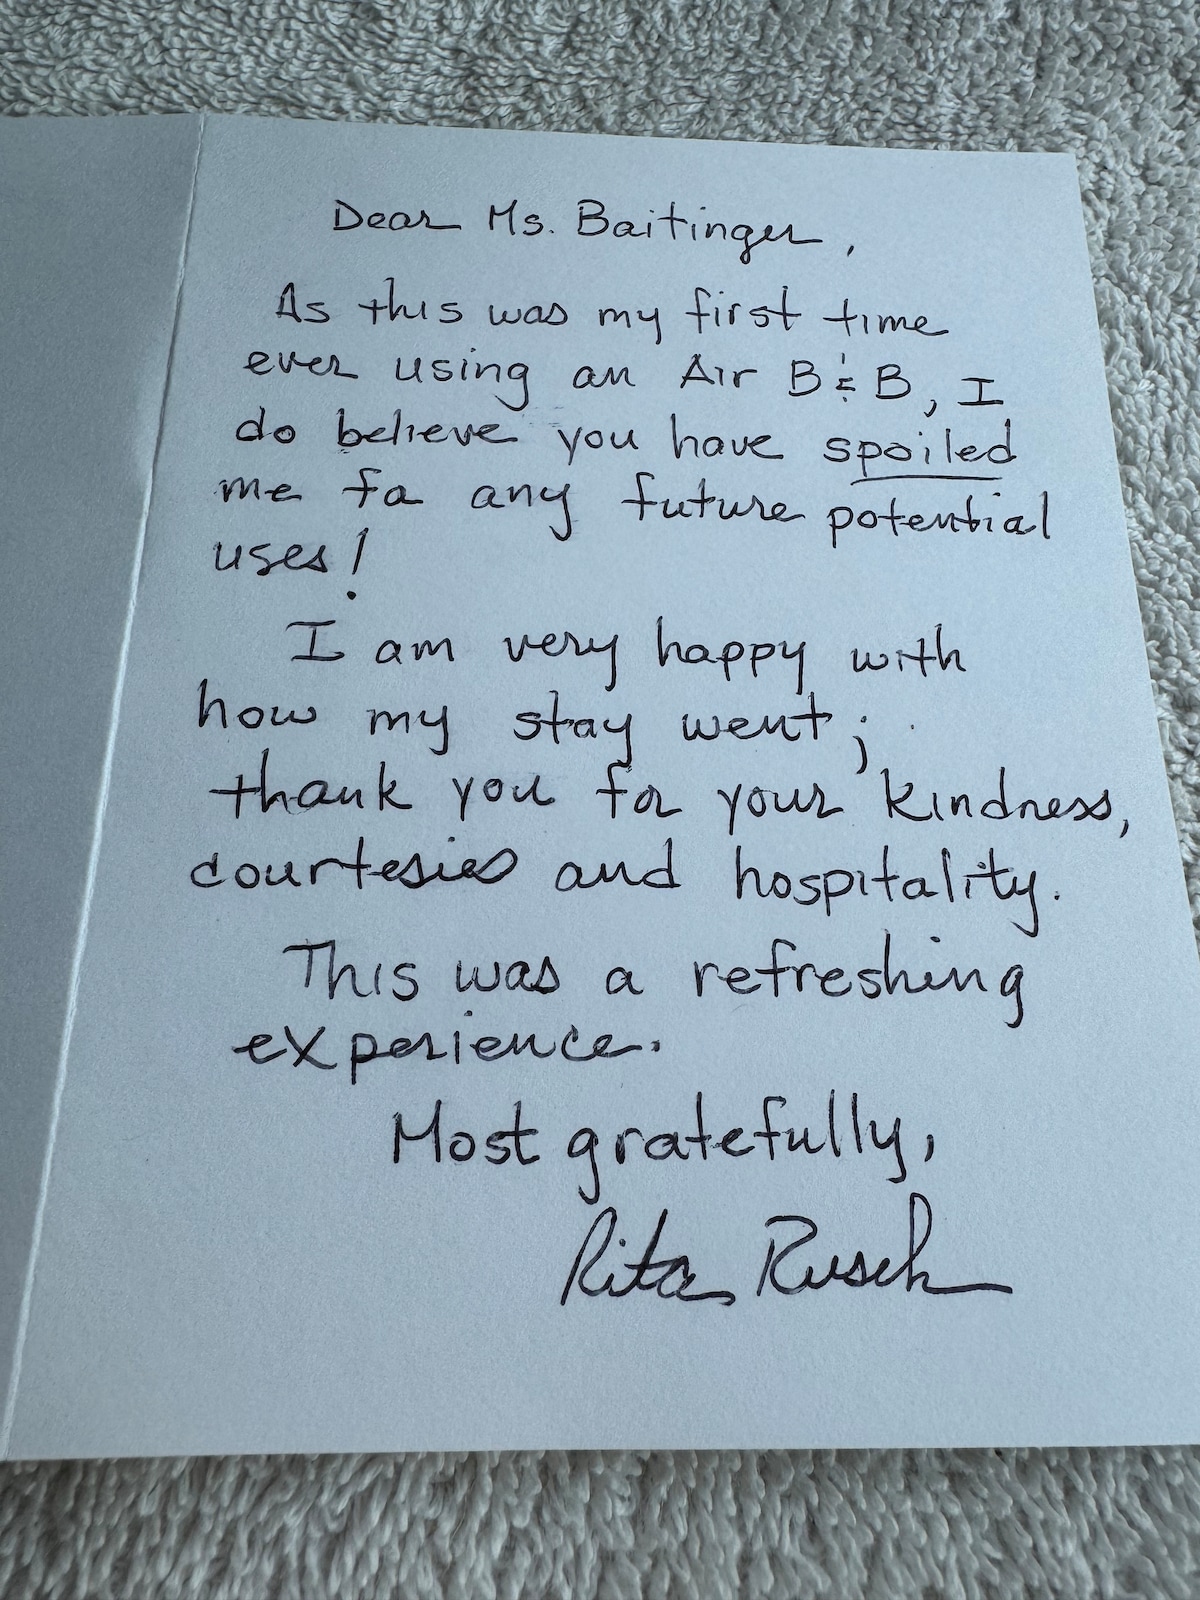 Dear Ms. Baitinger,
As this was my first time
ever using an Air B & B, I
do believe you have spoiled
me for any future potential
uses!
I am very happy with
how my stay went;
thank you for your kindness,
courtesies and hospitality.
This was a refreshing
experience.
Most gratefully,
Rita Rusch